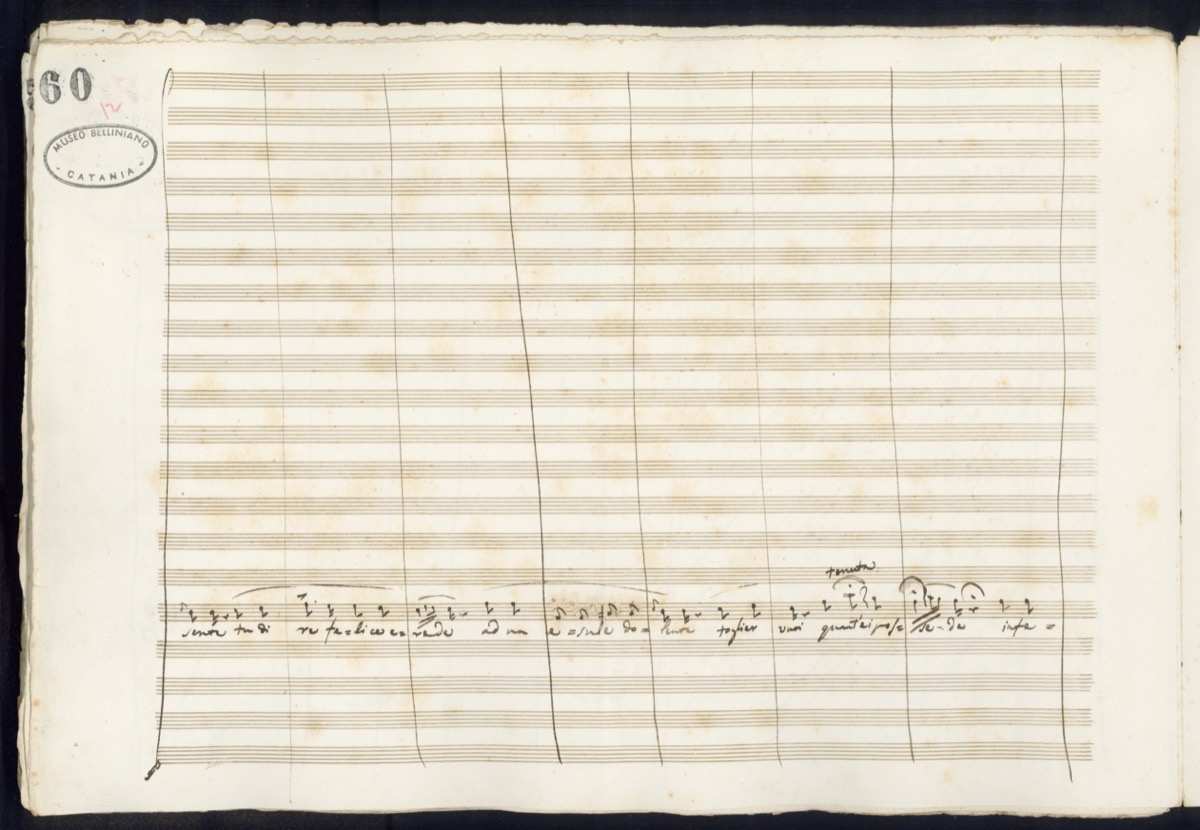 60
12
MUSEO BELLINIANO
- CATANIA -
tenuta
senso tu di re fe=lice e= rede ad un e=sule do= lente toglier vuoi quant'ei pos= se=de infe=